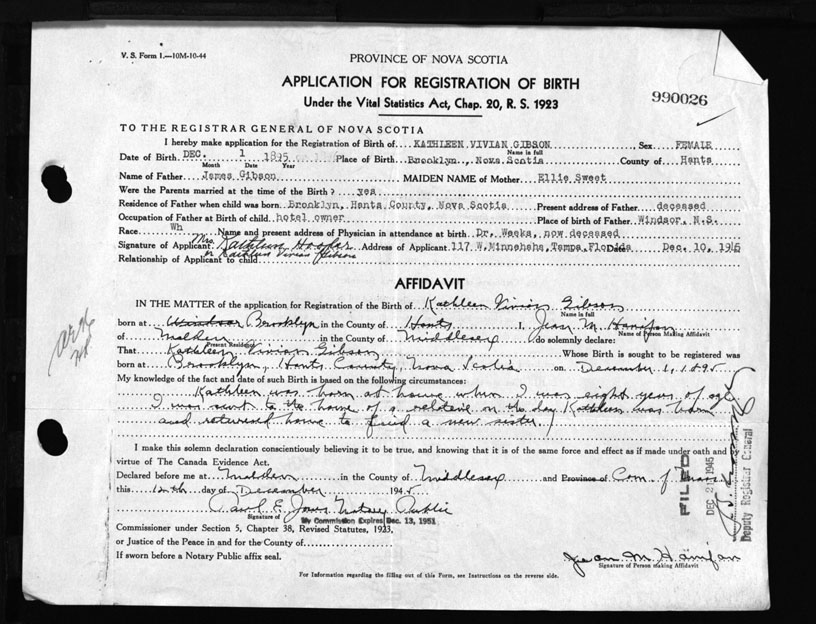 V. S. Form 1.—10M-10-44
PROVINCE OF NOVA SCOTIA
APPLICATION FOR REGISTRATION OF BIRTH
Under the Vital Statistics Act, Chap. 20, R. S. 1923
990026
TO THE REGISTRAR GENERAL OF NOVA SCOTIA
I hereby make application for the Registration of Birth of KATHLEEN VIVIAN GIBSON Sex FEMALE
Name in full
Date of Birth DEC. 1 1895 Place of Birth Brooklyn, Nova Scotia County of Hants
Month Date Year
Name of Father James Gibson MAIDEN NAME of Mother Ellie Sweet
Were the Parents married at the time of the Birth? yes
Residence of Father when child was born Brooklyn, Hants County, Nova Scotia Present address of Father deceased
Occupation of Father at Birth of child hotel owner Place of birth of Father Windsor, N.S.
Race Wh Name and present address of Physician in attendance at birth Dr. Weeks, now deceased
Signature of Applicant Mrs Kathleen Hooper Address of Applicant 117 W. Minnehaha, Tampa, Florida Date Dec. 10, 1945
Relationship of Applicant to child or Kathleen Vivian Gibson
AFFIDAVIT
IN THE MATTER of the application for Registration of Birth of Kathleen Vivian Gibson
Name in full
born at Windsor Brooklyn in the County of Hants I, Jean M. Hanifan
Name of Person Making Affidavit
of Malden in the County of Middlesex do solemnly declare:
Present Residence
That Kathleen Vivian Gibson Whose Birth is sought to be registered was
born at Brooklyn, Hants County, Nova Scotia on December 1, 1895
My knowledge of the fact and date of such Birth is based on the following circumstances:
Kathleen was born at home when I was eight years of age
I was sent to the home of a relative on the day Kathleen was born
and returned home to find a new sister.
I make this solemn declaration conscientiously believing it to be true, and knowing that it is of the same force and effect as if made under oath and by
virtue of The Canada Evidence Act.
Declared before me at Malden in the County of Middlesex and Province of Com. of Mass.
this 12th day of December 1945
Carl E. Jones Notary Public
Signature of
My Commission Expires Dec. 13, 1951
Commissioner under Section 5, Chapter 38, Revised Statutes, 1923,
or Justice of the Peace in and for the County of
If sworn before a Notary Public affix seal.
Jean M. Hanifan
Signature of Person making Affidavit
For Information regarding the filling out of this Form, see Instructions on the reverse side.
FILED
DEC 21 1945
Deputy Registrar General